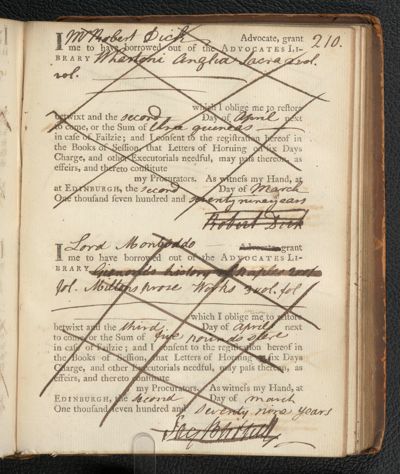 210.
I Mr Robert Dick Advocate, grant
me to have borrowed out of the ADVOCATES LI-
BRARY Whartons Anglia Sacra 2 vol.
vol.
which I oblige me to restore
betwixt and the second Day of April next
to come, or the Sum of three guineas
in case of Failzie; and I consent to the registration hereof in
the Books of Session, that Letters of Horning on six Days
Charge, and other Executorials needful, may pass thereon, as
effeirs, and thereto constitute
my Procurators. As witness my Hand, at
at EDINBURGH, the second Day of March
One thousand seven hundred and seventy nine years
Robert Dick
I Lord Monboddo Advocate, grant
me to have borrowed out of the ADVOCATES LI-
BRARY history of Naples 2 vol.
fol. Miltons prose Works 3 vol. fol
which I oblige me to restore
betwixt and the third Day of April next
to come, or the Sum of five pounds
in case of Failzie; and I consent to the registration hereof in
the Books of Session, that Letters of Horning on six Days
Charge, and other Executorials needful, may pass thereon, as
effeirs, and thereto constitute
my Procurators. As witness my Hand, at
EDINBURGH, the second Day of march
One thousand seven hundred and Seventy nine years